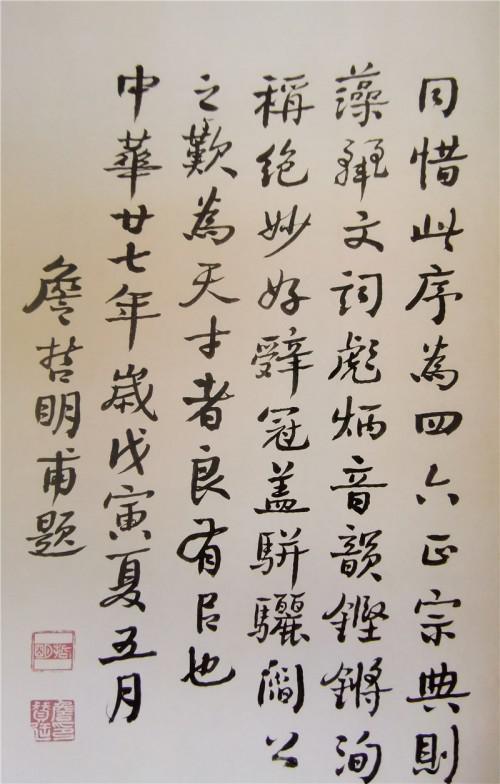 同惜此序為四六正宗典則
藻文詞彪炳音韻鏗鏘洵
稱絕妙好辤冠蓋駢驪閻公
之歎為天才者良有㠯也
中華廿七年歲戊寅夏五月
詹哲明甫題
哲明